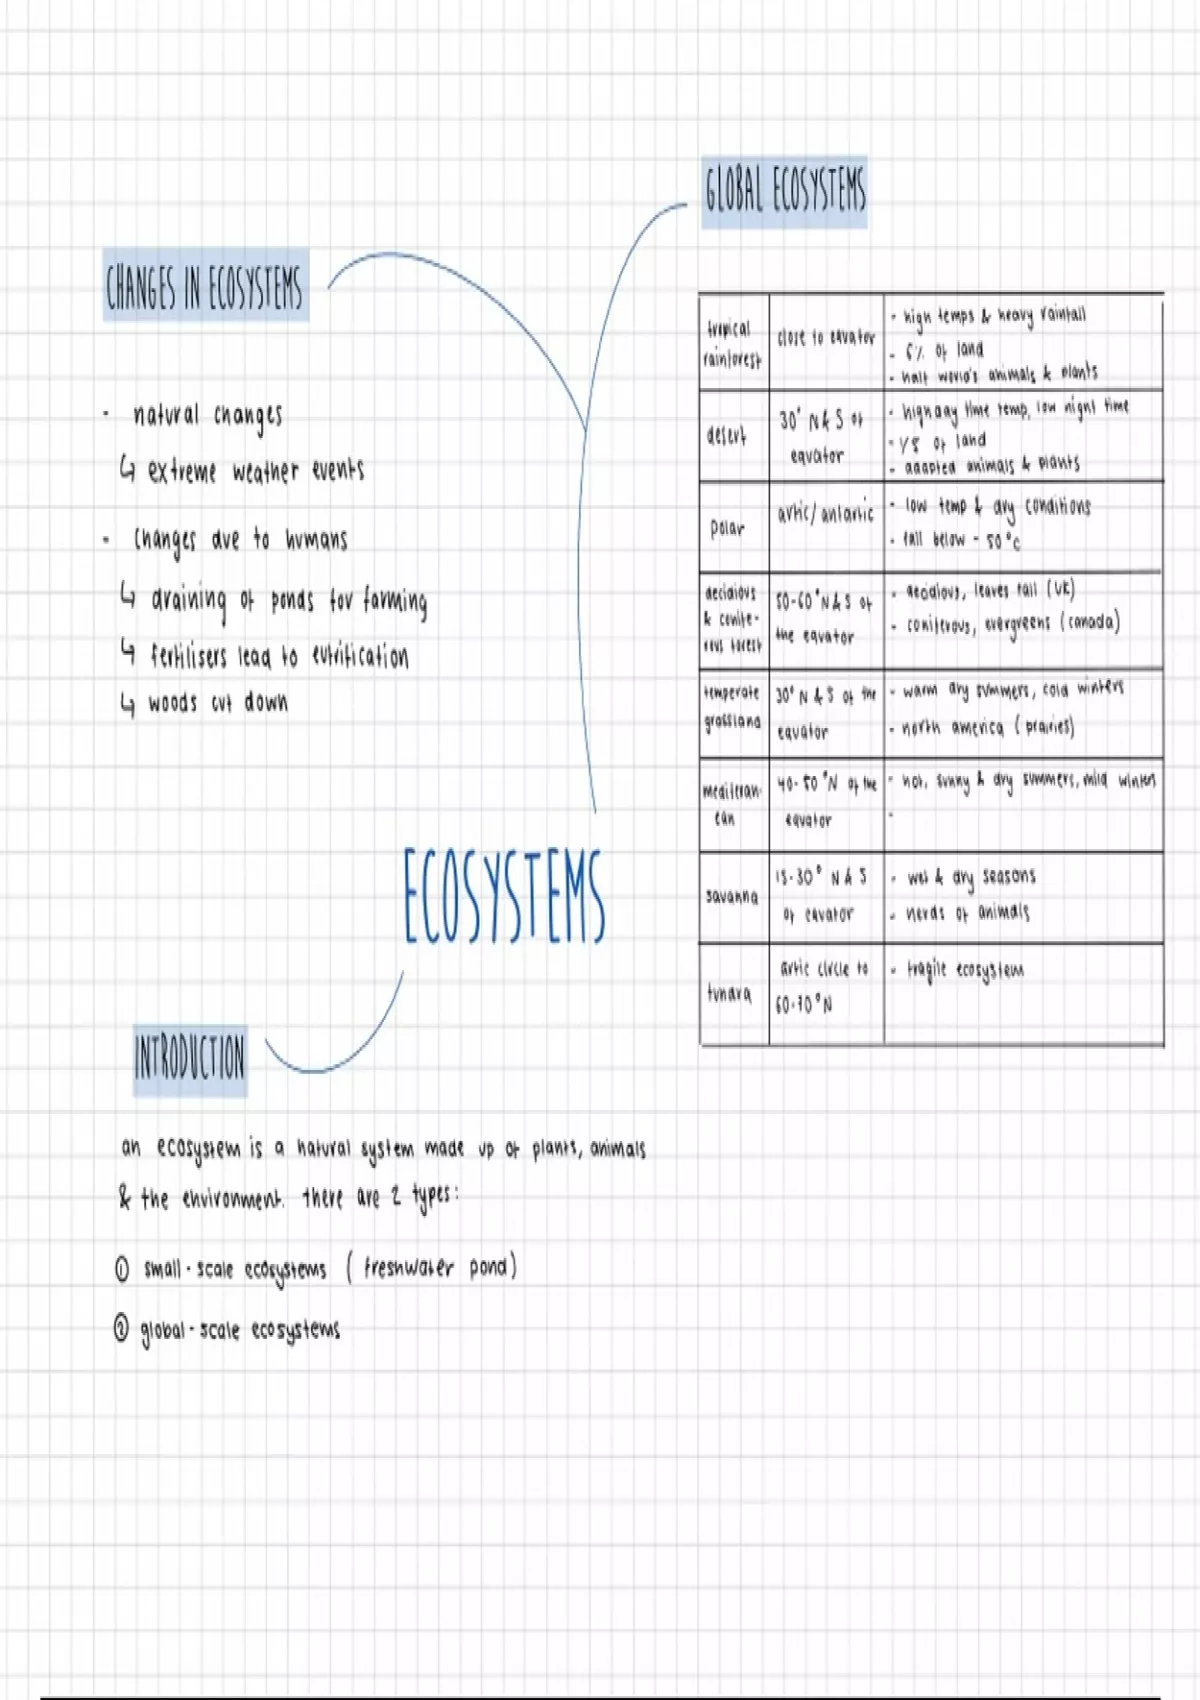 GLOBAL ECOSYSTEMS
CHANGES IN ECOSYSTEMS
- natural changes
↳ extreme weather events
- changes due to humans
↳ draining of ponds for farming
↳ fertilisers lead to eutrification
↳ woods cut down
tropical
rainforest
close to equator
- high temps & heavy rainfall
- 6% of land
- half world's animals & plants
desert
30° N & S of
equator
- high day time temp, low night time
- 1/5 of land
- adapted animals & plants
polar
artic/antartic
- low temp & dry conditions
- fall below -50°C
decidious
& conife-
rous forest
50-60°N & S of
the equator
- decidious, leaves fall (UK)
- coniferous, evergreens (canada)
temperate
grassland
30° N & S of the
equator
- warm dry summers, cold winters
- north america (prairies)
mediteran-
ean
40-50°N of the
equator
- hot, sunny & dry summers, mild winters
-
savanna
15-30° N & S
of equator
- wet & dry seasons
- herds of animals
tundra
artic circle to
60-70°N
- fragile ecosystem
ECOSYSTEMS
INTRODUCTION
an ecosystem is a natural system made up of plants, animals
& the environment. there are 2 types:
① small-scale ecosystems (freshwater pond)
② global-scale ecosystems